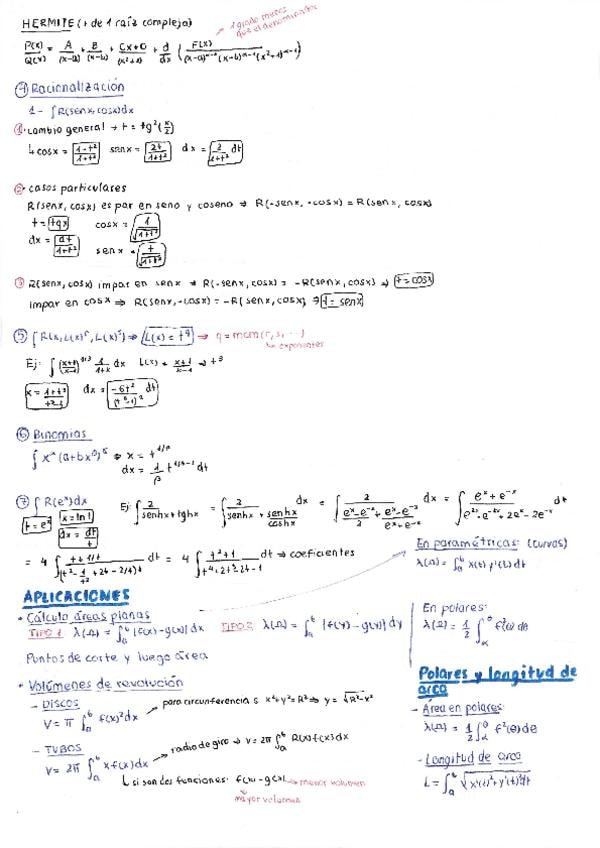 HERMITE (+ de 1 raíz compleja)
1 grado menos que el denominador
P(x)/Q(x) = A/(x-a) + B/(x-b) + Cx+D/(x²+1) + d/dx ( F(x)/(x-a)^(n-1) (x-b)^(m-1) (x²+1)^(n-1) )
④ Racionalización
1 - ∫R(senx, cosx)dx
①· cambio general → t = tg²(x/2)
↳ cosx = 1-t²/1+t² senx = 2t/1+t² dx = 2/1+t² dt
②· casos particulares
R(senx, cosx) es par en seno y coseno ⇒ R(-senx, -cosx) = R(senx, cosx)
t = tgx cosx = 1/√1+t²
dx = dt/1+t² senx = t/√1+t²
③ R(senx, cosx) impar en senx ⇒ R(-senx, cosx) = -R(senx, cosx) ⇒ t = cosx
impar en cosx ⇒ R(senx, -cosx) = -R(senx, cosx) ⇒ t = senx
⑤ ∫ R(x, L(x)^r, L(x)^s) ⇒ L(x) = t^q → q = mcm(r, s, ...)
↳ exponentes
Ej: ∫ dx L(x) = x+1/x-1 → t³
dx = -6t²/(t³-1)² dt
⑥ Binomias
∫ x^α (a+bx^β)^δ ⇒ x = t^(1/β)
dx = 1/β t^(1/β-1) dt
⑦ ∫ R(e^x)dx Ej: ∫ 2/senhx+tghx = ∫ 2/senhx + senhx/coshx dx = ∫ 2/e^x-e^-x/2 + e^x-e^-x/e^x+e^-x dx = ∫ e^x+e^-x/e^2x-e^-2x+2e^x-2e^-x dx
t = e^x x = ln t
dx = dt/t
= 4 ∫ t+1/t/(t²-1/t²+2t-2/t)t dt = 4 ∫ t²+1/t⁴+2t³-2t-1 dt → coeficientes
En paramétricas: (curvas)
λ(Ω) = ∫_a^b x(t) y'(t) dt
APLICACIONES
• Cálculo áreas planas
TIPO 1: λ(Ω) = ∫_a^b |f(x)-g(x)| dx TIPO 2: λ(Ω) = ∫_a^b |f(y)-g(y)| dy
Puntos de corte y luego área
En polares:
λ(Ω) = 1/2 ∫_α^θ f²(θ) dθ
• Volúmenes de revolución
- DISCOS
V = π ∫_a^b f(x)² dx
para circunferencias x²+y²=R² ⇒ y = √R²-x²
- TUBOS
V = 2π ∫_a^b x f(x) dx
radio de giro → V = 2π ∫_a^b R(x) f(x) dx
↳ si son dos funciones: f(x)-g(x) → menor volumen
mayor volumen
Polares y longitud de arco
- Área en polares:
λ(Ω) = 1/2 ∫_α^θ f²(θ) dθ
- Longitud de arco
L = ∫_a^b √x'(t)²+y'(t)² dt